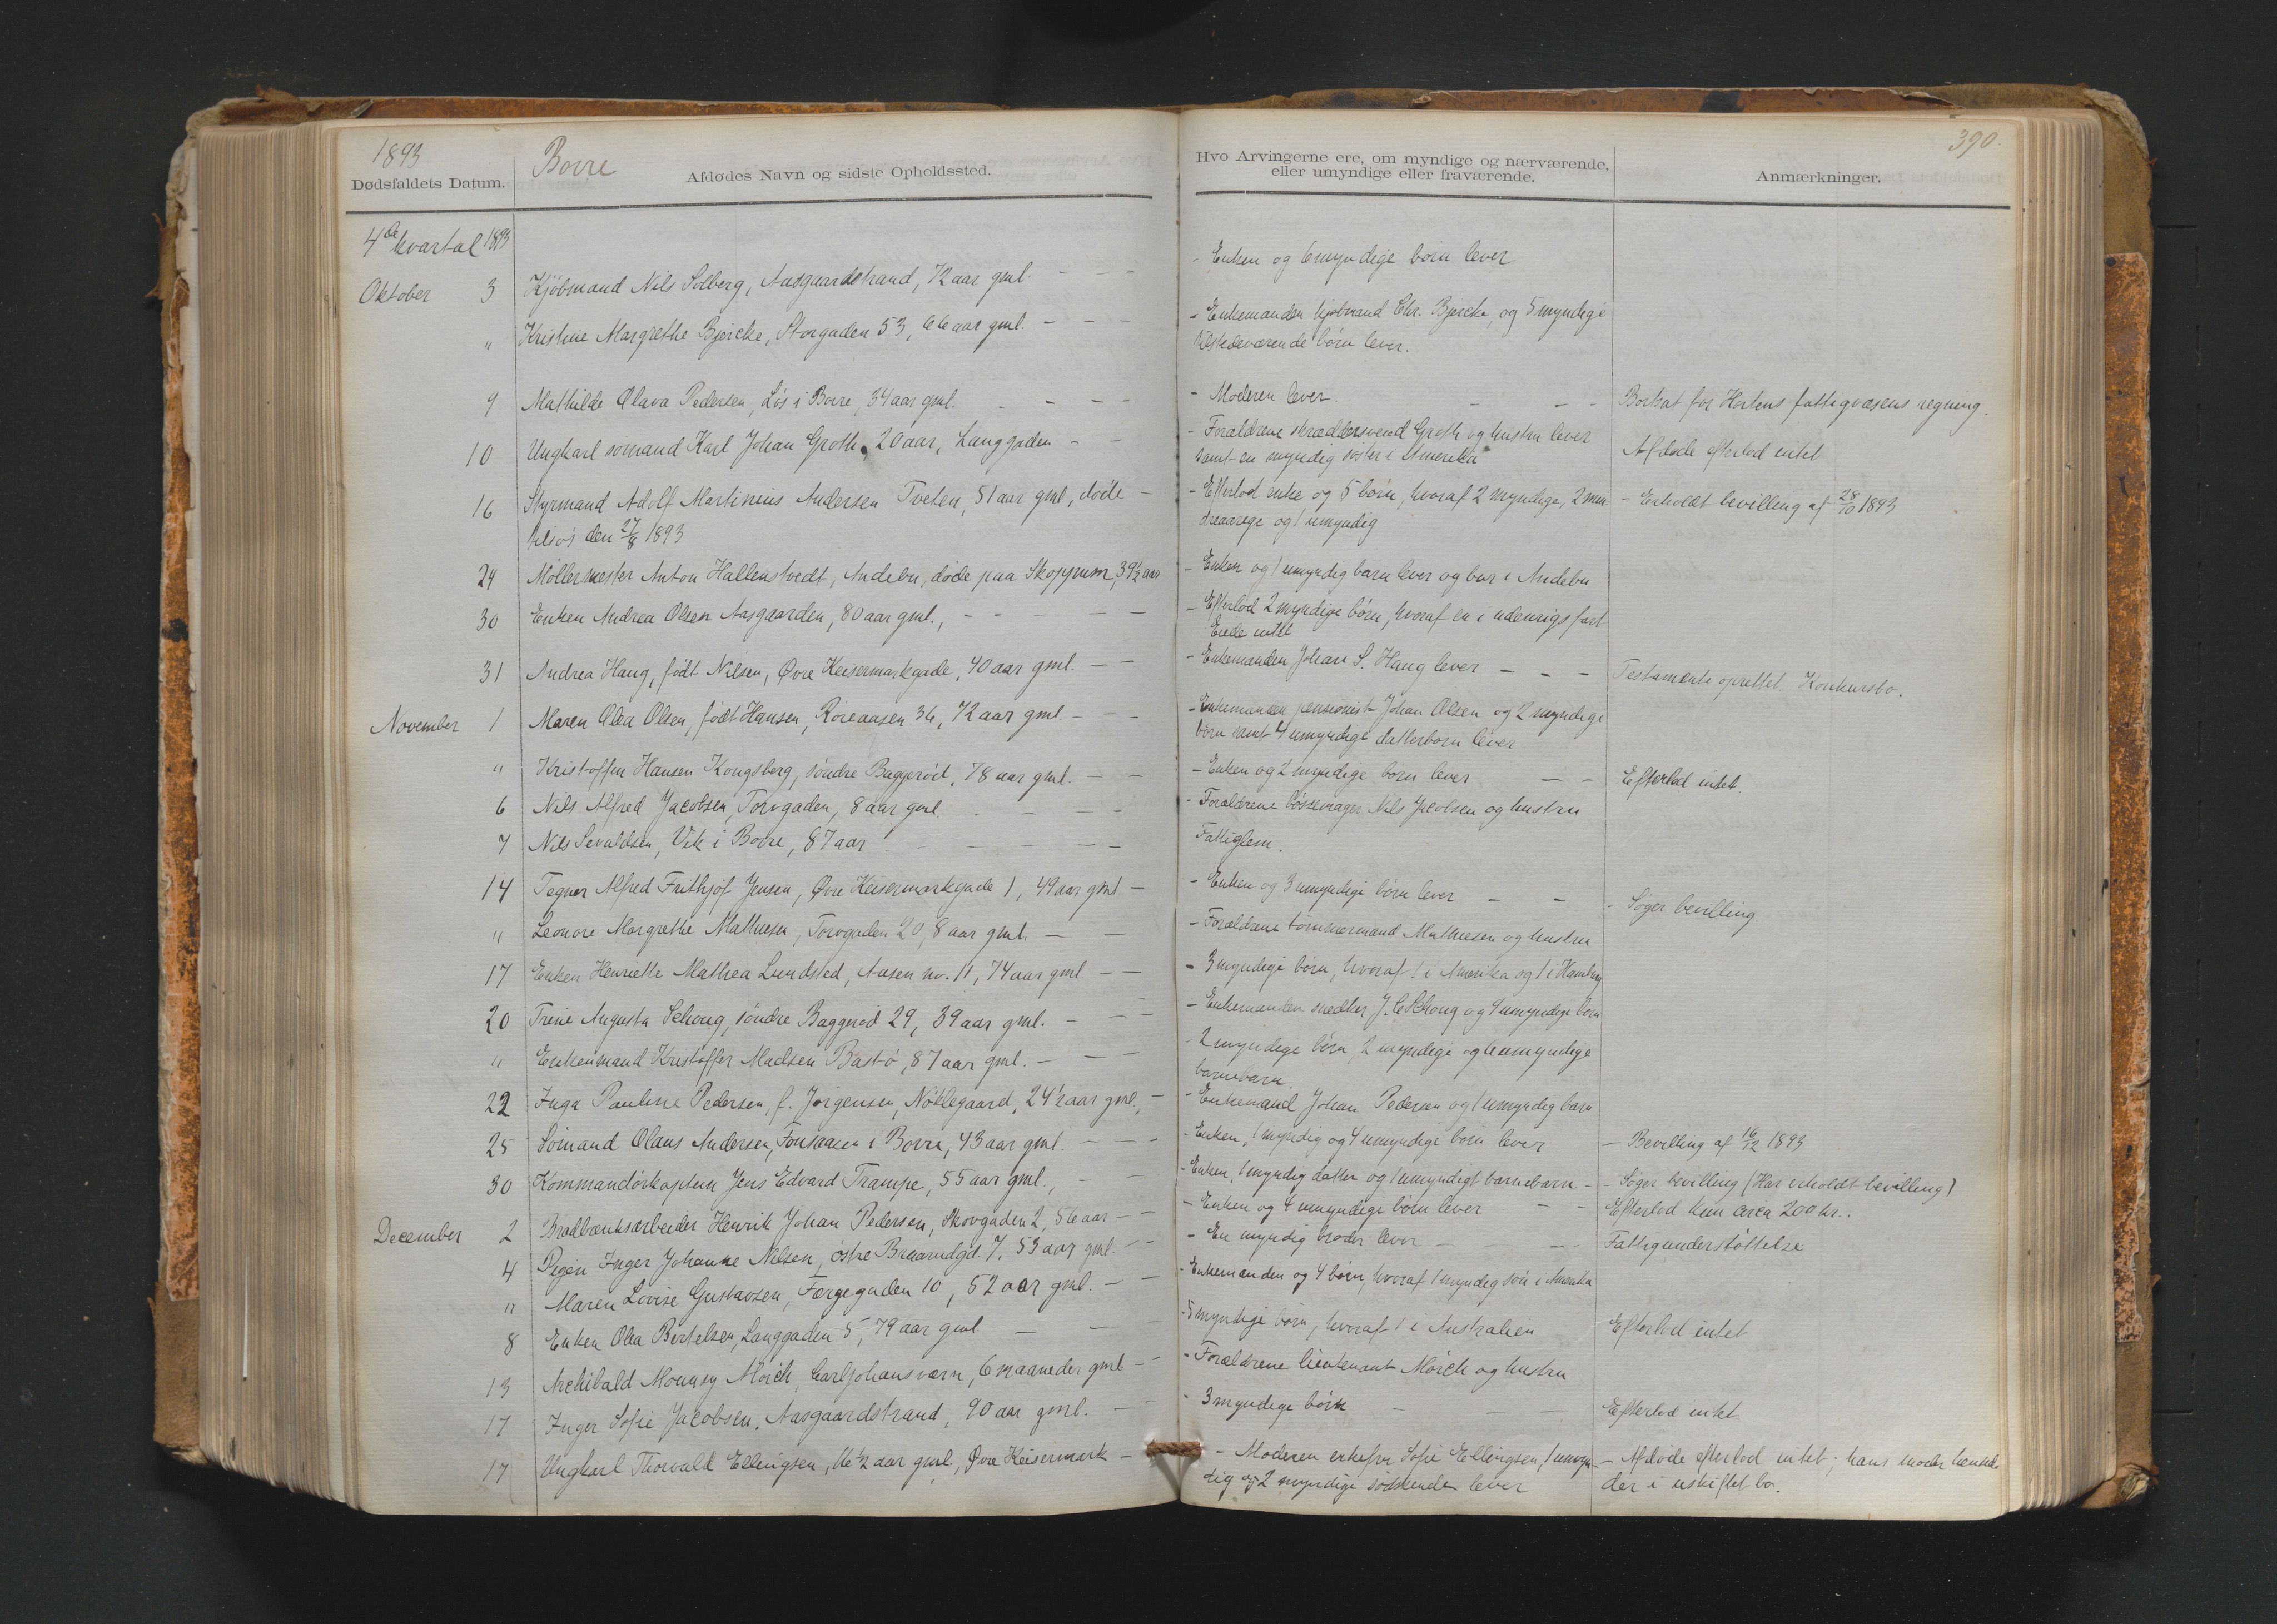 1893
Borre
390.
Dødsfaldets Datum.
Afdødes Navn og sidste Opholdssted.
Hvo Arvingerne ere, om myndige og nærværende,
eller umyndige eller fraværende.
Anmærkninger.
4de kvartal 1893
Oktober 3 Kjøbmand Nils Solberg, Aasgaardstrand, 72 aar gml. - - - - Enken og 6 myndige børn lever
" Kristine Margrethe Bjercke, Storgaden 53, 66 aar gml. - - - - Enkemanden kjøbmand Chr. Bjercke, og 5 myndige
tilstedeværende børn lever.
9 Mathilde Olava Pedersen, Løs i Borre, 34 aar gml. - - - - - Moderen lever. - - - Bortsat for Hortens fattigvæsens regning.
10 Ungkarl sømand Karl Johan Groth, 20 aar, Langgaden - - - Forældrene skræddersvend Groth og hustru lever
samt en myndig søster i Amerika
Afdøde efterlod intet
16 Styrmand Adolf Martinius Andersen Tveten, 51 aar gml, døde - - Efterlod enke og 5 børn, hvoraf 2 myndige, 2 min- - Erholdt bevilling af 28/10 1893
tilsøs den 27/8 1893
dreaarige og 1 umyndig
24 Møllermester Anton Hallenstvedt, Andebu, døde paa Skoppum, 39½ aar - Enken og 1 umyndig barn lever og bor i Andebu
30 Enken Andrea Olsen Aasgaarden, 80 aar gml., - - - - - - Efterlod 2 myndige børn, hvoraf en i udenrigs fart
Eiede intet
31 Andrea Haug, født Nilsen, Øvre Keisermarkgade, 40 aar gml. - - - Enkemanden Johan S. Haug lever - - - Testamente oprettet. Konkursbo.
November 1 Maren Olea Olsen, født Hansen, Røreaasen 36, 72 aar gml. - - - - Enkemanden pensionist Johan Olsen og 2 myndige
børn samt 4 umyndige datterbørn lever
" Kristoffer Hansen Kongsberg, søndre Baggerød, 78 aar gml. - - - Enken og 2 myndige børn lever - - Efterlod intet.
6 Nils Alfred Jacobsen, Torvgaden, 8 aar gml. - - - - - Forældrene bøssemager Nils Jacobsen og hustru
7 Nils Sevaldsen, Vik i Borre, 87 aar - - - - - Fattiglem.
14 Tegner Alfred Frithjof Jensen, Øvre Keisermarkgade 1, 49 aar gml - - Enken og 3 umyndige børn lever - - - Søger bevilling.
" Leonore Margrethe Mathiesen, Torvgaden 20, 8 aar gml. - - - Forældrene tømmermand Mathiesen og hustru
17 Enken Henriette Mathea Lundsted, Aasen no. 11, 74 aar gml. - - - 3 myndige børn, hvoraf 1 i Amerika og 1 i Hamburg
20 Trine Augusta Schoug, søndre Baggerød 29, 39 aar gml. - - - - Enkemanden snedker J. C. Schoug og 4 umyndige børn
" Enkemand Kristoffer Madsen Bastø, 87 aar gml. - - - - 2 myndige børn, 2 myndige og 6 umyndige
barnebarn.
22 Inga Pauline Pedersen, f. Jørgensen, Nøklegaard, 24½ aar gml, - - Enkemand Johan Pedersen og 1 umyndig barn
25 Sømand Olaus Andersen, Fonsaasen i Borre, 43 aar gml. - - - - Enken, 1 myndig og 4 umyndige børn lever - Bevilling af 16/12 1893
30 Kommandørkaptein Jens Edvard Trampe, 55 aar gml., - - - Enken, 1 myndig datter og 1 umyndigt barnebarn - - Søger bevilling (Har erholdt bevilling)
December 2 Brødbænksarbeider Henrik Johan Pedersen, Skovgaden 2, 56 aar - - - Enken og 4 umyndige børn lever - - Efterlod kun circa 200 kr..
4 Pigen Inger Johanne Nilsen, østre Braarudgd 7. 53 aar gml. - - - En myndig broder lever - - Fattigunderstøttelse
" Maren Lovise Gustavsen, Færgegaden 10, 52 aar gml. - - - Enkemanden og 4 børn, hvoraf 1 myndig søn i Amerika
8 Enken Olea Bertelsen, Langgaden 5, 79 aar gml. - - - - 5 myndige børn, hvoraf 1 i Australien Efterlod intet
13 Archibald Mounsy Mørch, Carljohansværn, 6 maaneder gml - - - Forældrene lieutenant Mørch og hustru
17 Inger Sofie Jacobsen, Aasgaardstrand, 90 aar gml. - - - 3 myndige børn - - - Efterlod intet
17 Ungkarl Thorvald Ellingsen, 16½ aar gml., Øvre Keisermark - - Moderen enkefru Sofie Ellingsen, 1 umyn- - Afdøde efterlod intet; hans moder hensid-
dig og 2 myndige sødskende lever
der i uskiftet bo.